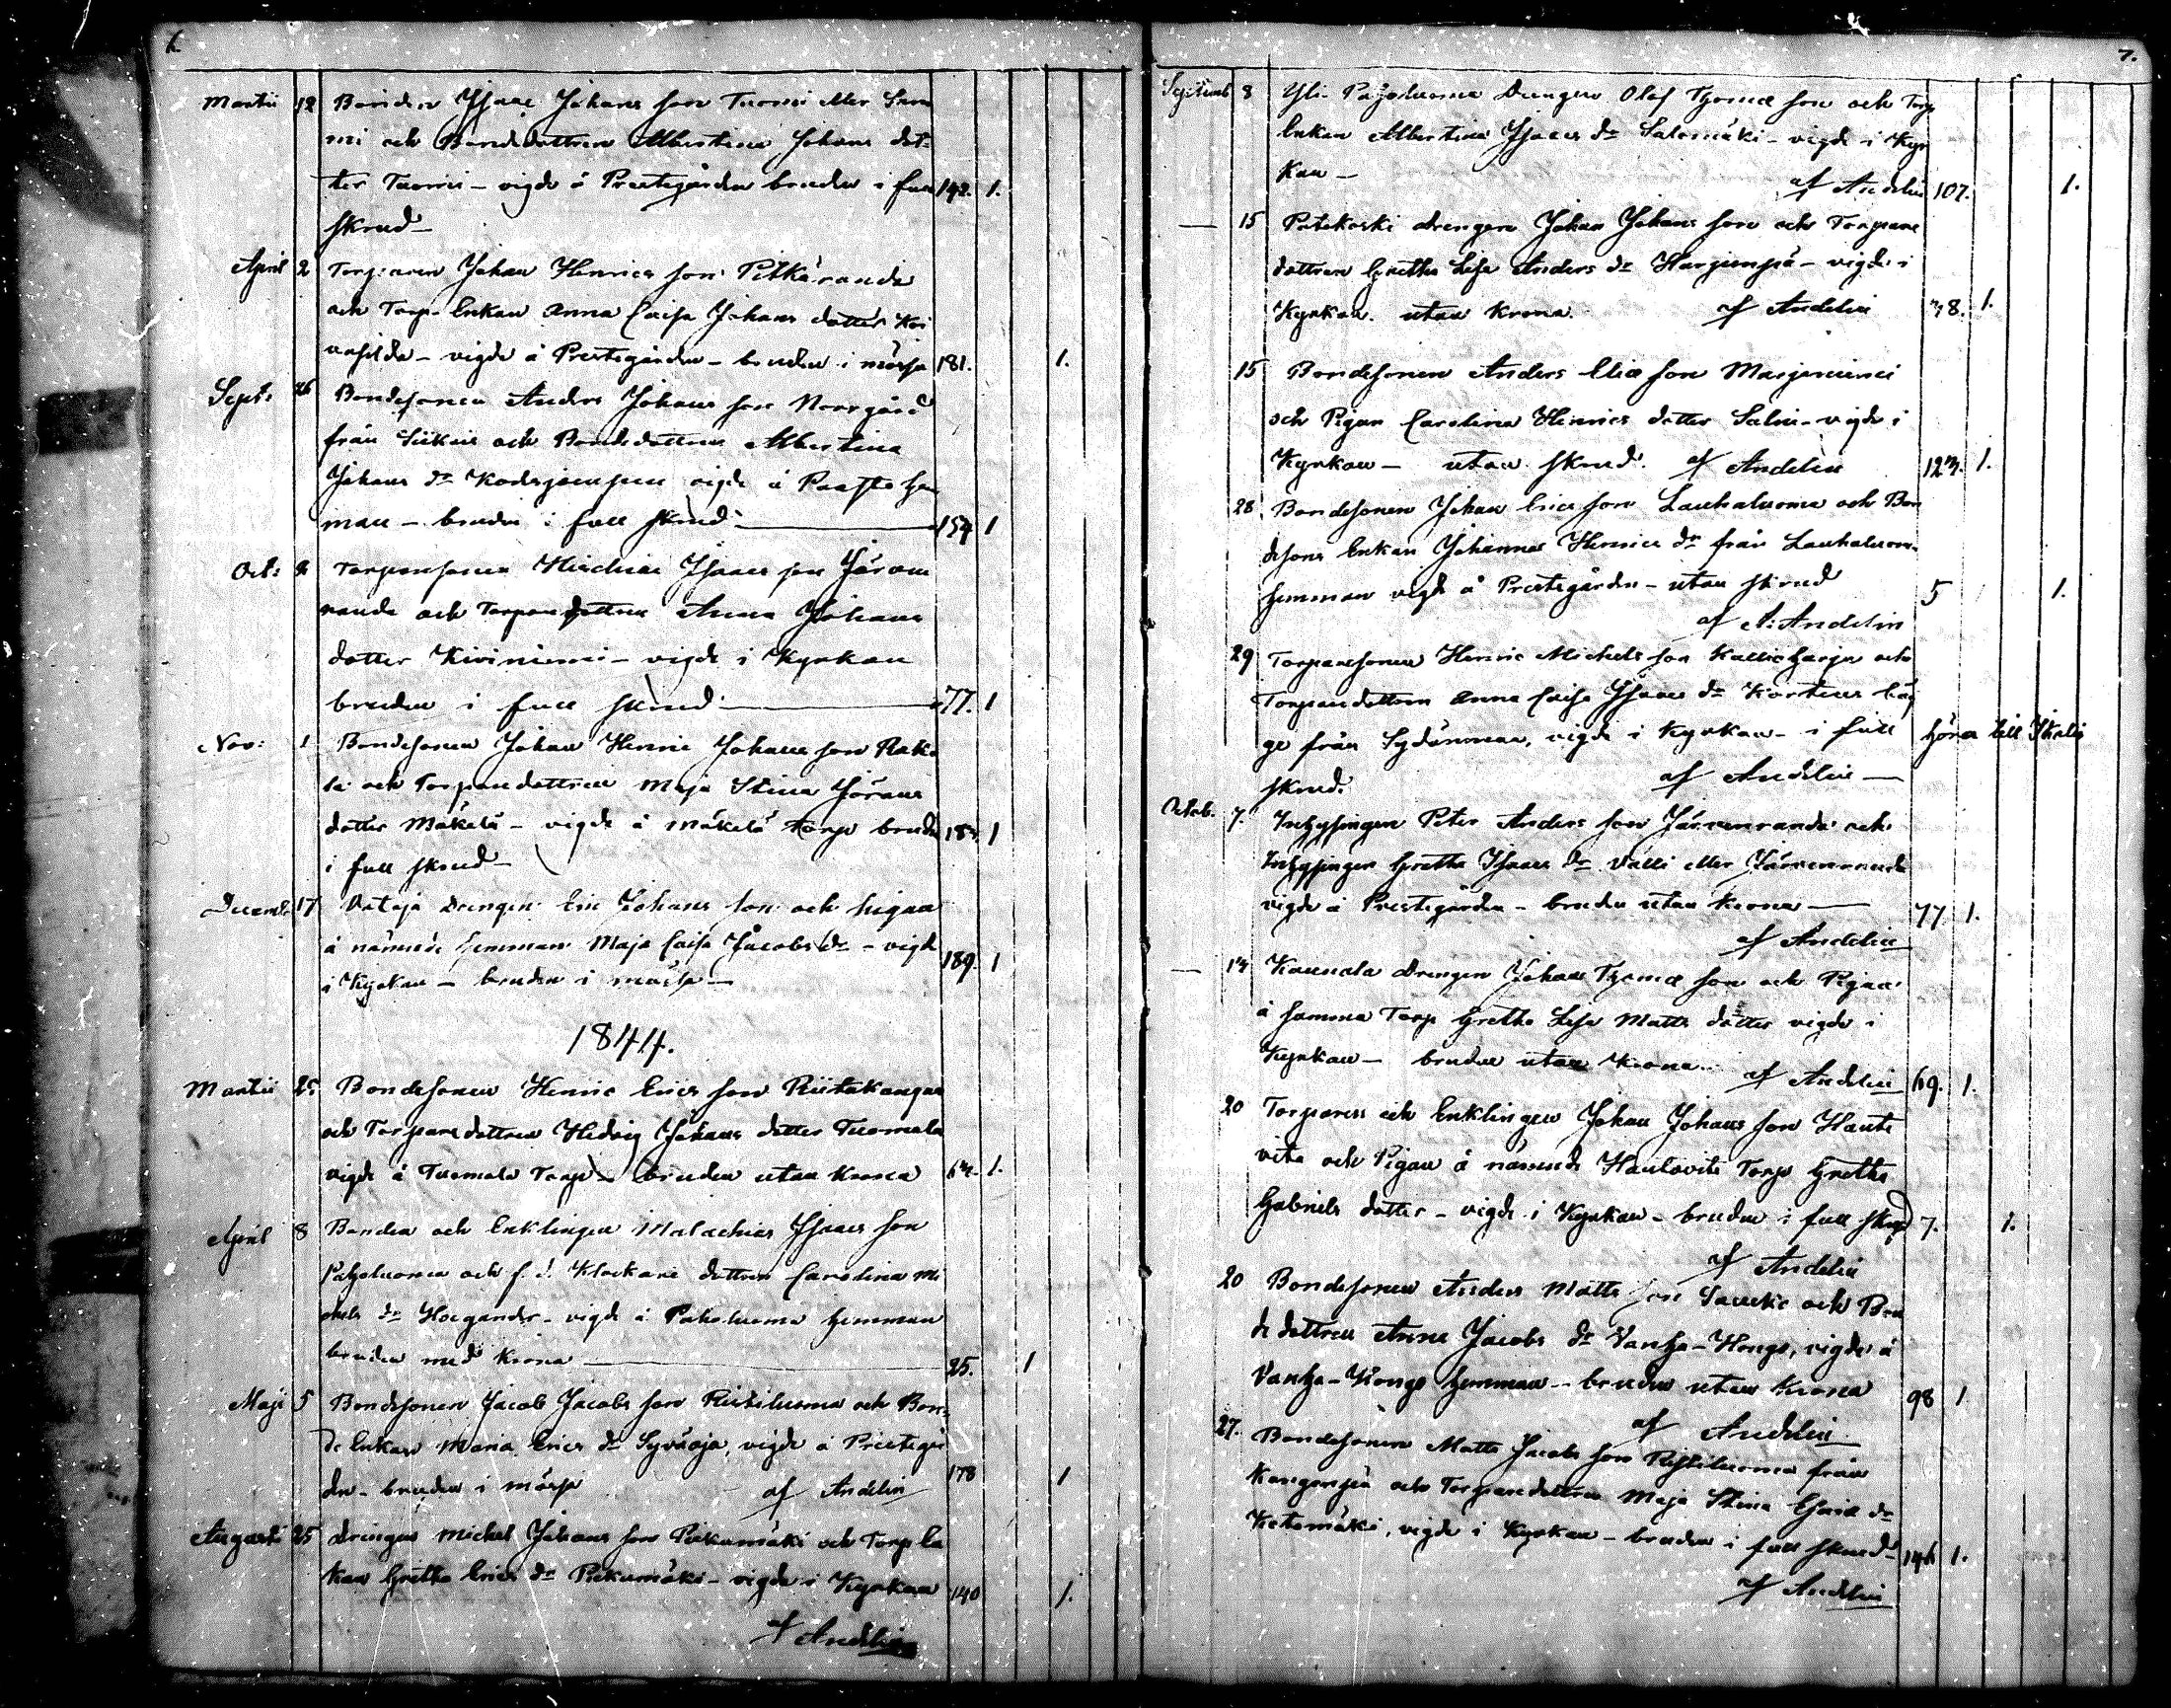 6.
Martii 12 Bonden Isaac Johans son Tuomi eller
mi och Bondedottren Albertina Johans dot-
ter Tuomi - vigde å Prestegården bruden i full 142. 1.
skrud -
April 2 Torparen Johan Henrics son Pitkäranda
och Torp. Enkan Anna Caisa Johans dotter Koi
- vigde å Prestegården - bruden i mössa 181. 1.
Sept: 26 Bondesonen Anders Johans son Norrgård
från och Bondedottren Albertina
Johans dr vigde å hem
man - bruden i full skrud - 154 1
Oct: 2 Torparesonen Isaacs son Järven
randa och Torparedottren Anna Johans
dotter Kiviniemi - vigde i Kyrkan
bruden i full skrud - 77. 1
Nov: 1 Bondesonen Johan Henric Johans son
och Torparedottren Maja Stina Jörans
dotter Mäkelä - vigde å Mäkelä Torp bruden 1
i full skrud -
Decemb. 17 Vataja Drengen Eric Johans son och pigan
å nämnde hemman Maja Caisa Jacobs dr - vigde
i Kyrkan - bruden i mössa - 189. 1
1844.
Martii 25 Bondesonen Henric Erics son Riitakangas
och Torparedottren Hedvig Johans dotter Tuomala
vigde å Tuomala Torp - bruden utan krona 1.
April 8 Bonden och Enklingen Malachias Isaacs son
Paholuoma och f. d. Klockare dottren Carolina Mi
chels dr Hoegander - vigde å Paholuoma hemman
bruden med krona - 25. 1
Maji 5 Bondesonen Jacob Jacobs son Ristiluoma och Bon-
de Enkan Maria Erics dr Syväoja, vigde å Prestegår
den - bruden i mössa af Andelin 178 1
Augusti 25 Drengen Michel Johans son Pirkumäki och Torp En
kan Gretha Erics dr - vigde i Kyrkan 140 1.
af Andelin
7.
Septemb 8 Yli- Paholuoma Drengen Olof Thomæ son och Torp
Enkan Albertina Isaacs dr Salomäki - vigde i Kyr
kan - af Andelin 107. 1.
- 15 Potokoski drengen Johan Johans son och Torpare
dottren Gretha Lisa Anders dr Harjunpä - vigde i
Kyrkan. utan krona. af Andelin 38. 1.
15 Bondesonen Anders Eliæ son Marjaniemi
och Pigan Carolina Henrics dotter Salmi - vigde i
Kyrkan - utan skrud. af Andelin 123. 1.
28 Bondesonen Johan Erics son Lauhaluoma och Bon
desons Enkan Johanna Henrics dr från Lauhaluoma
hemman vigde å Prestegården - utan skrud 5 1.
af A: Andelin
29 Torparesonen Henric Michels son Kallioharju och
Torparedottren Anna Caisa Isaacs dr Kortens båg
ge från Sydänmaa, vigde i Kyrkan - i full höra till
skrud. af Andelin -
Octob. 7. Inhysingen Peter Anders son Järvenranda och
Inhysingen Gretha Isaacs dr Valli eller Järvenranda
vigde å Prestegården - bruden utan krona - 77 1.
af Andelin
- 13 Kaunola drengen Johan Thomæ son och Pigan
å samma Torp Gretha Lisa Matts dotter vigde i
Kyrkan - bruden utan krona. af Andelin 69. 1.
20 Torparen och Enklingen Johan Johans son Hauto
vita och Pigan å nämnde Hautovita Torp Gretha
Gabriels dotter - vigde i Kyrkan - bruden i full skrud 7. 1.
af Andelin
20 Bondesonen Anders Matts son och Bon
de dottren Anna Jacobs dr Vanha-Hongo, vigde å
Vanha-Hongo hemman - bruden utan krona 98 1
af Andelin
27. Bondesonen Matts Jacobs son Ristiluoma från
Kanganpä och Torparedottren Maja Stina Esaiæ dr
Ketomäki, vigde i Kyrkan - bruden i full skrud - 146 1.
af Andelin